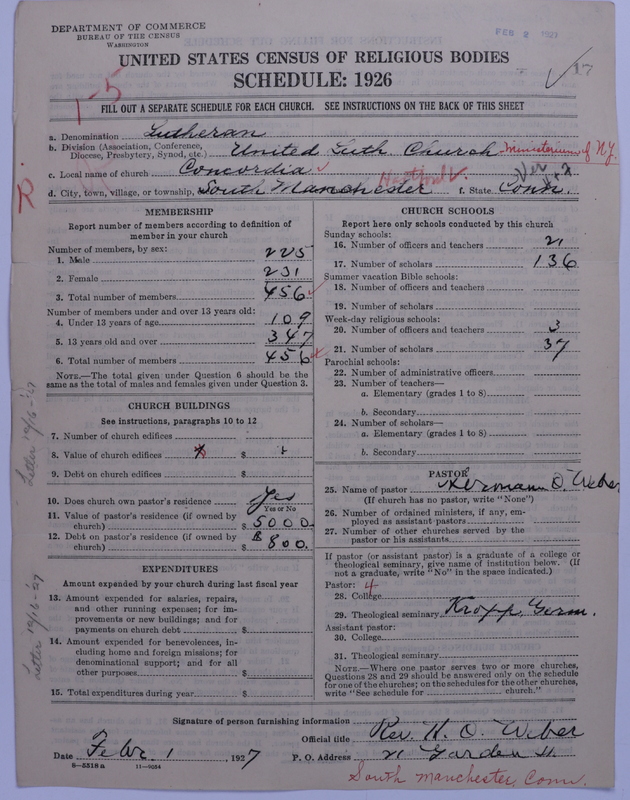 DEPARTMENT OF COMMERCE
BUREAU OF THE CENSUS
WASHINGTON
FEB 2 1927
UNITED STATES CENSUS OF RELIGIOUS BODIES
SCHEDULE: 1926
17
1-5
FILL OUT A SEPARATE SCHEDULE FOR EACH CHURCH. SEE INSTRUCTIONS ON THE BACK OF THIS SHEET
a. Denomination Lutheran
b. Division (Association, Conference, Diocese, Presbytery, Synod, etc.) United Luth Church Ministerium of N.Y.
c. Local name of church Concordia
R
Hartford
Ver
d. City, town, village, or township, South Manchester f. State Conn.
MEMBERSHIP
Report number of members according to definition of member in your church
Number of members, by sex:
1. Male 225
2. Female 231
3. Total number of members 456
Number of members under and over 13 years old:
4. Under 13 years of age 109
5. 13 years old and over 347
6. Total number of members 456
NOTE.—The total given under Question 6 should be the same as the total of males and females given under Question 3.
CHURCH BUILDINGS
See instructions, paragraphs 10 to 12
7. Number of church edifices
8. Value of church edifices $
9. Debt on church edifices $
10. Does church own pastor's residence Yes
Yes or No
11. Value of pastor's residence (if owned by church) $ 5000.
12. Debt on pastor's residence (if owned by church) $ 800.
EXPENDITURES
Amount expended by your church during last fiscal year
13. Amount expended for salaries, repairs, and other running expenses; for improvements or new buildings; and for payments on church debt $
14. Amount expended for benevolences, including home and foreign missions; for denominational support; and for all other purposes $
15. Total expenditures during year $
Letter 12/16-27
Letter 12/16-27
CHURCH SCHOOLS
Report here only schools conducted by this church
Sunday schools:
16. Number of officers and teachers 21
17. Number of scholars 136
Summer vacation Bible schools:
18. Number of officers and teachers
19. Number of scholars
Week-day religious schools:
20. Number of officers and teachers 3
21. Number of scholars 37
Parochial schools:
22. Number of administrative officers
23. Number of teachers—
a. Elementary (grades 1 to 8)
b. Secondary
24. Number of scholars—
a. Elementary (grades 1 to 8)
b. Secondary
PASTOR
25. Name of pastor Hermann O. Weber
(If church has no pastor, write "None")
26. Number of ordained ministers, if any, employed as assistant pastors
27. Number of other churches served by the pastor or his assistants
If pastor (or assistant pastor) is a graduate of a college or theological seminary, give name of institution below. (If not a graduate, write "No" in the space indicated.)
Pastor: 4
28. College
29. Theological seminary Kropp, Germ.
Assistant pastor:
30. College
31. Theological seminary
NOTE.—Where one pastor serves two or more churches, Questions 28 and 29 should be answered only on the schedule for one of the churches; on the schedules for the other churches, write "See schedule for church."
Signature of person furnishing information
Official title Rev. H. O. Weber
Date Febr. 1, 1927 P. O. Address 21 Garden St.
8-5518a 11-9054
South Manchester, Conn.